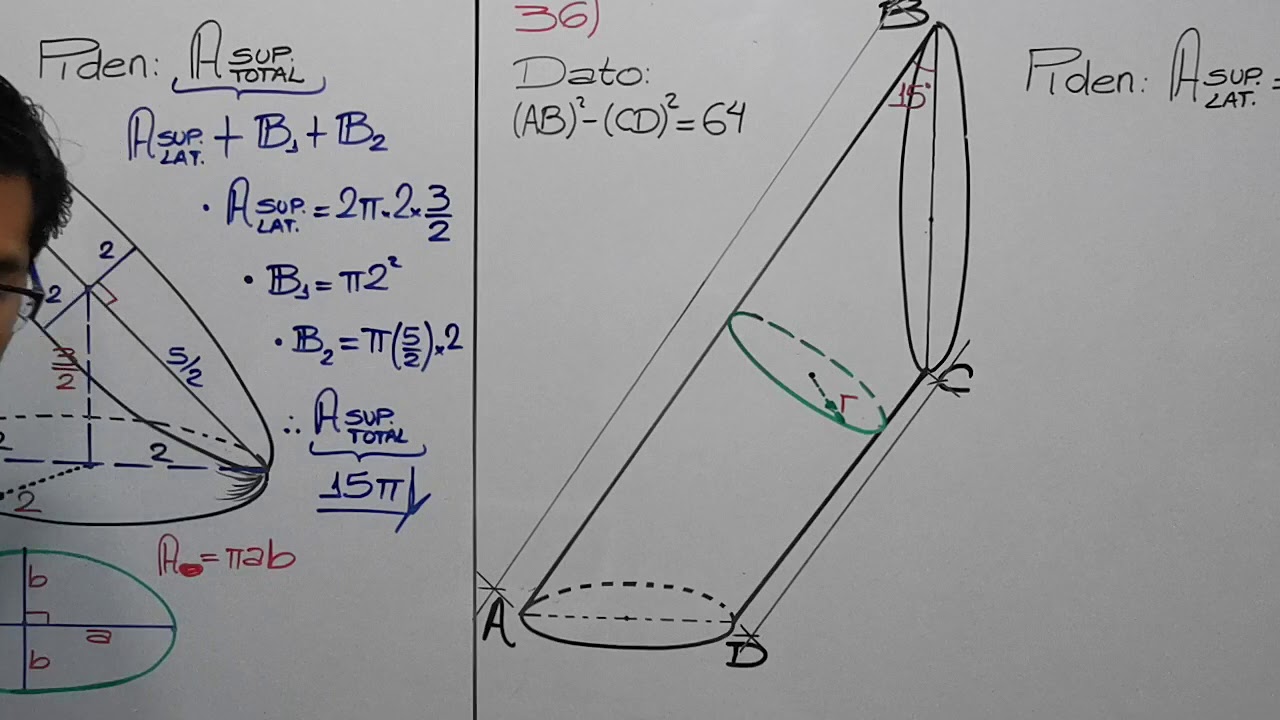 Piden: A SUP. TOTAL
A SUP. LAT. + B₁ + B₂
· A SUP. LAT. = 2π·2×3/2
· B₁ = π2²
· B₂ = π(5/2)×2
∴ A SUP. TOTAL
15π
2
2
3/2
5/2
2
2
2
A = πab
b
a
b
36)
Dato:
(AB)² - (CD)² = 64
B
15°
C
r
A
D
Piden: A SUP. LAT. =